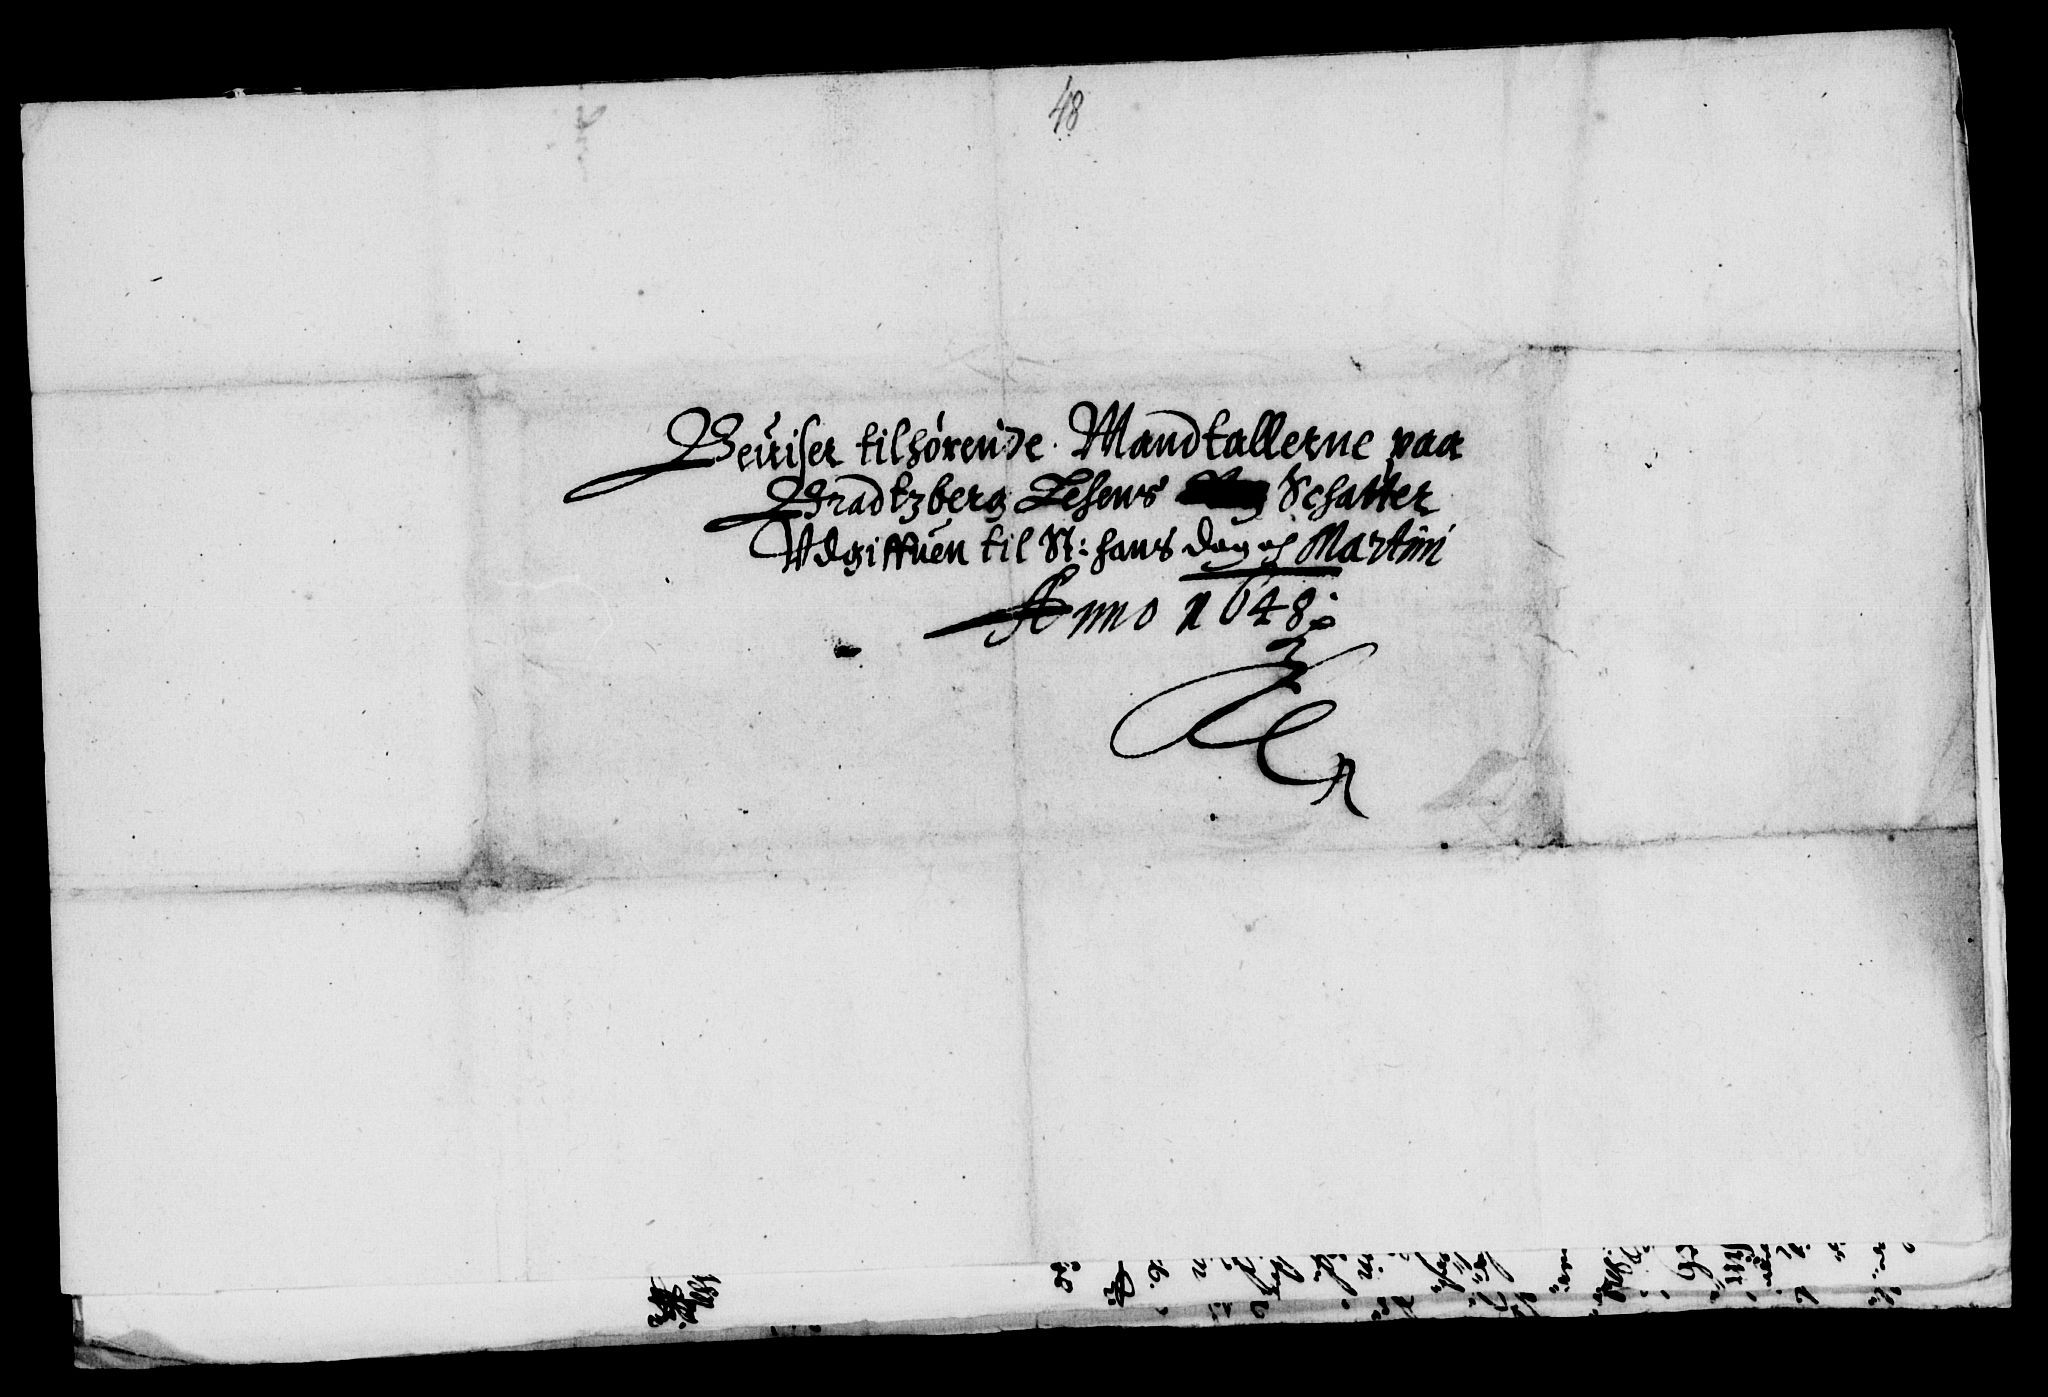 48
Beuiser tilhørende Mandtallerne paa
Bradtzberg Lehens Schatter
Udgiffuen til St: hans dag och Martini
Anno 1648